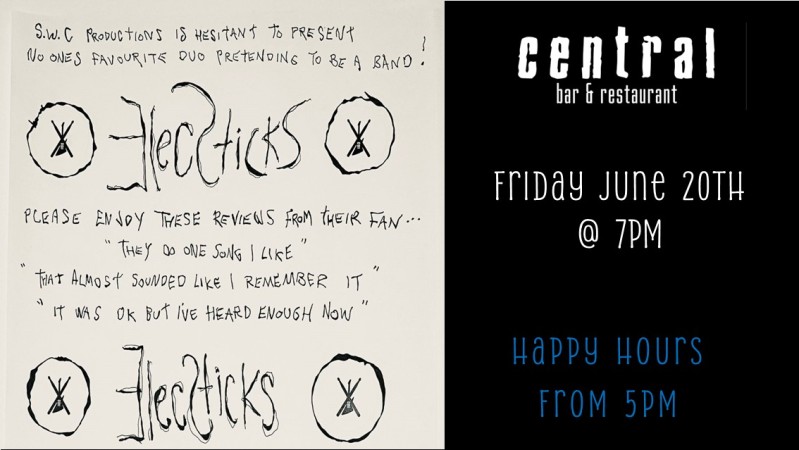 S.W.C PRODUCTIONS IS HESITANT TO PRESENT
NO ONES FAVOURITE DUO PRETENDING TO BE A BAND!
ElecSticks
PLEASE ENJOY THESE REVIEWS FROM THEIR FAN...
"THEY DO ONE SONG I LIKE"
"THAT ALMOST SOUNDED LIKE I REMEMBER IT"
"IT WAS OK BUT I'VE HEARD ENOUGH NOW"
ElecSticks
central
bar & restaurant
Friday June 20TH
@ 7PM
Happy Hours
From 5PM